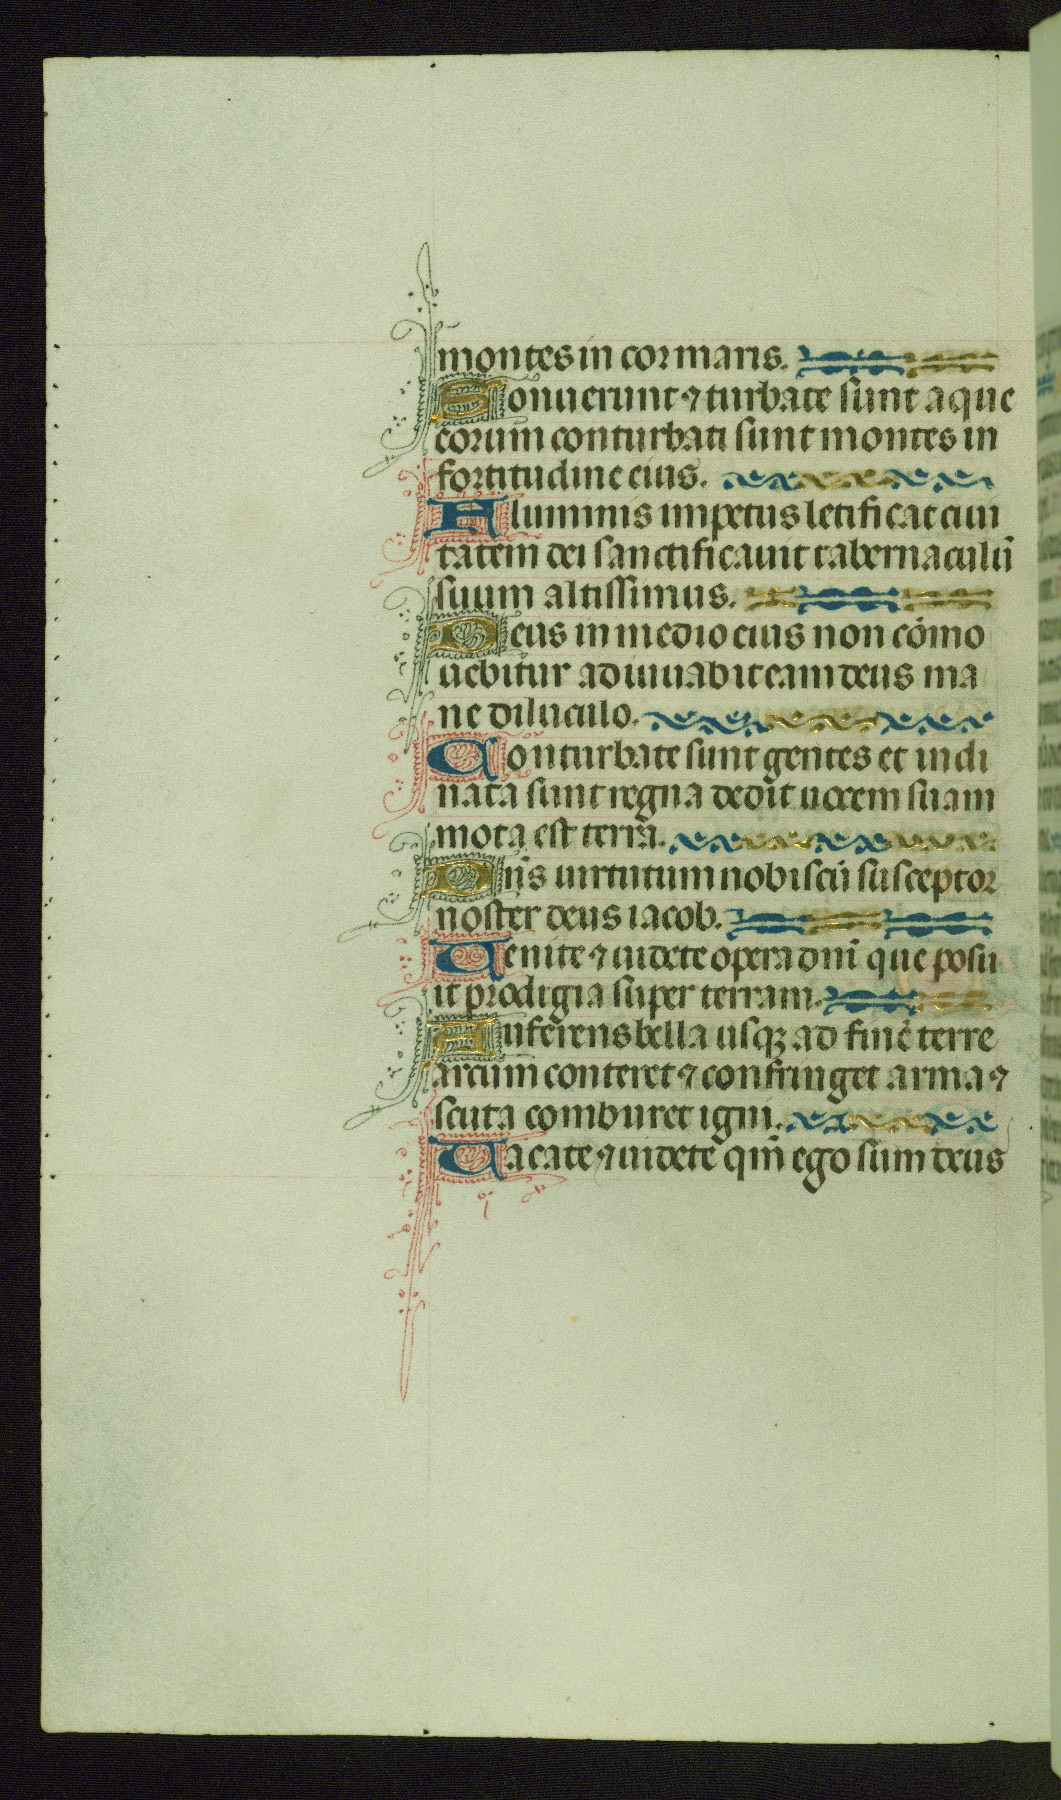 montes in cor maris.
Sonuerunt ⁊ turbate sunt aque
eorum conturbati sunt montes in
fortitudine eius.
Fluminis impetus letificat ciui
tatem dei sanctificauit tabernaculū
suum altissimus.
Deus in medio eius non cōmo
uebitur adiuuabit eam deus ma
ne diluculo.
Conturbate sunt gentes et incli
nata sunt regna dedit uocem suam
mota est terra.
Dn̄s uirtutum nobiscū susceptor
noster deus iacob.
Uenite ⁊ uidete opera dn̄i que posu
it prodigia super terram.
Auferens bella usqꝫ ad finē terre
arcum conteret ⁊ confringet arma ⁊
scuta comburet igni.
Uacate ⁊ uidete qm̄ ego sum deus